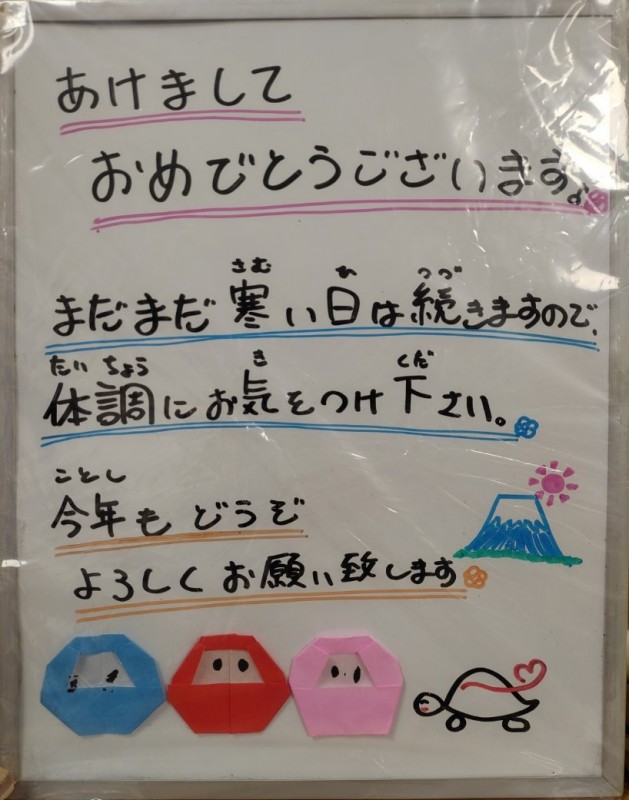 あけまして
おめでとうございます。
さむ ひ つづ
まだまだ寒い日は続きますので、
たいちょう き くだ
体調にお気をつけ下さい。
ことし
今年もどうぞ
よろしくお願い致します